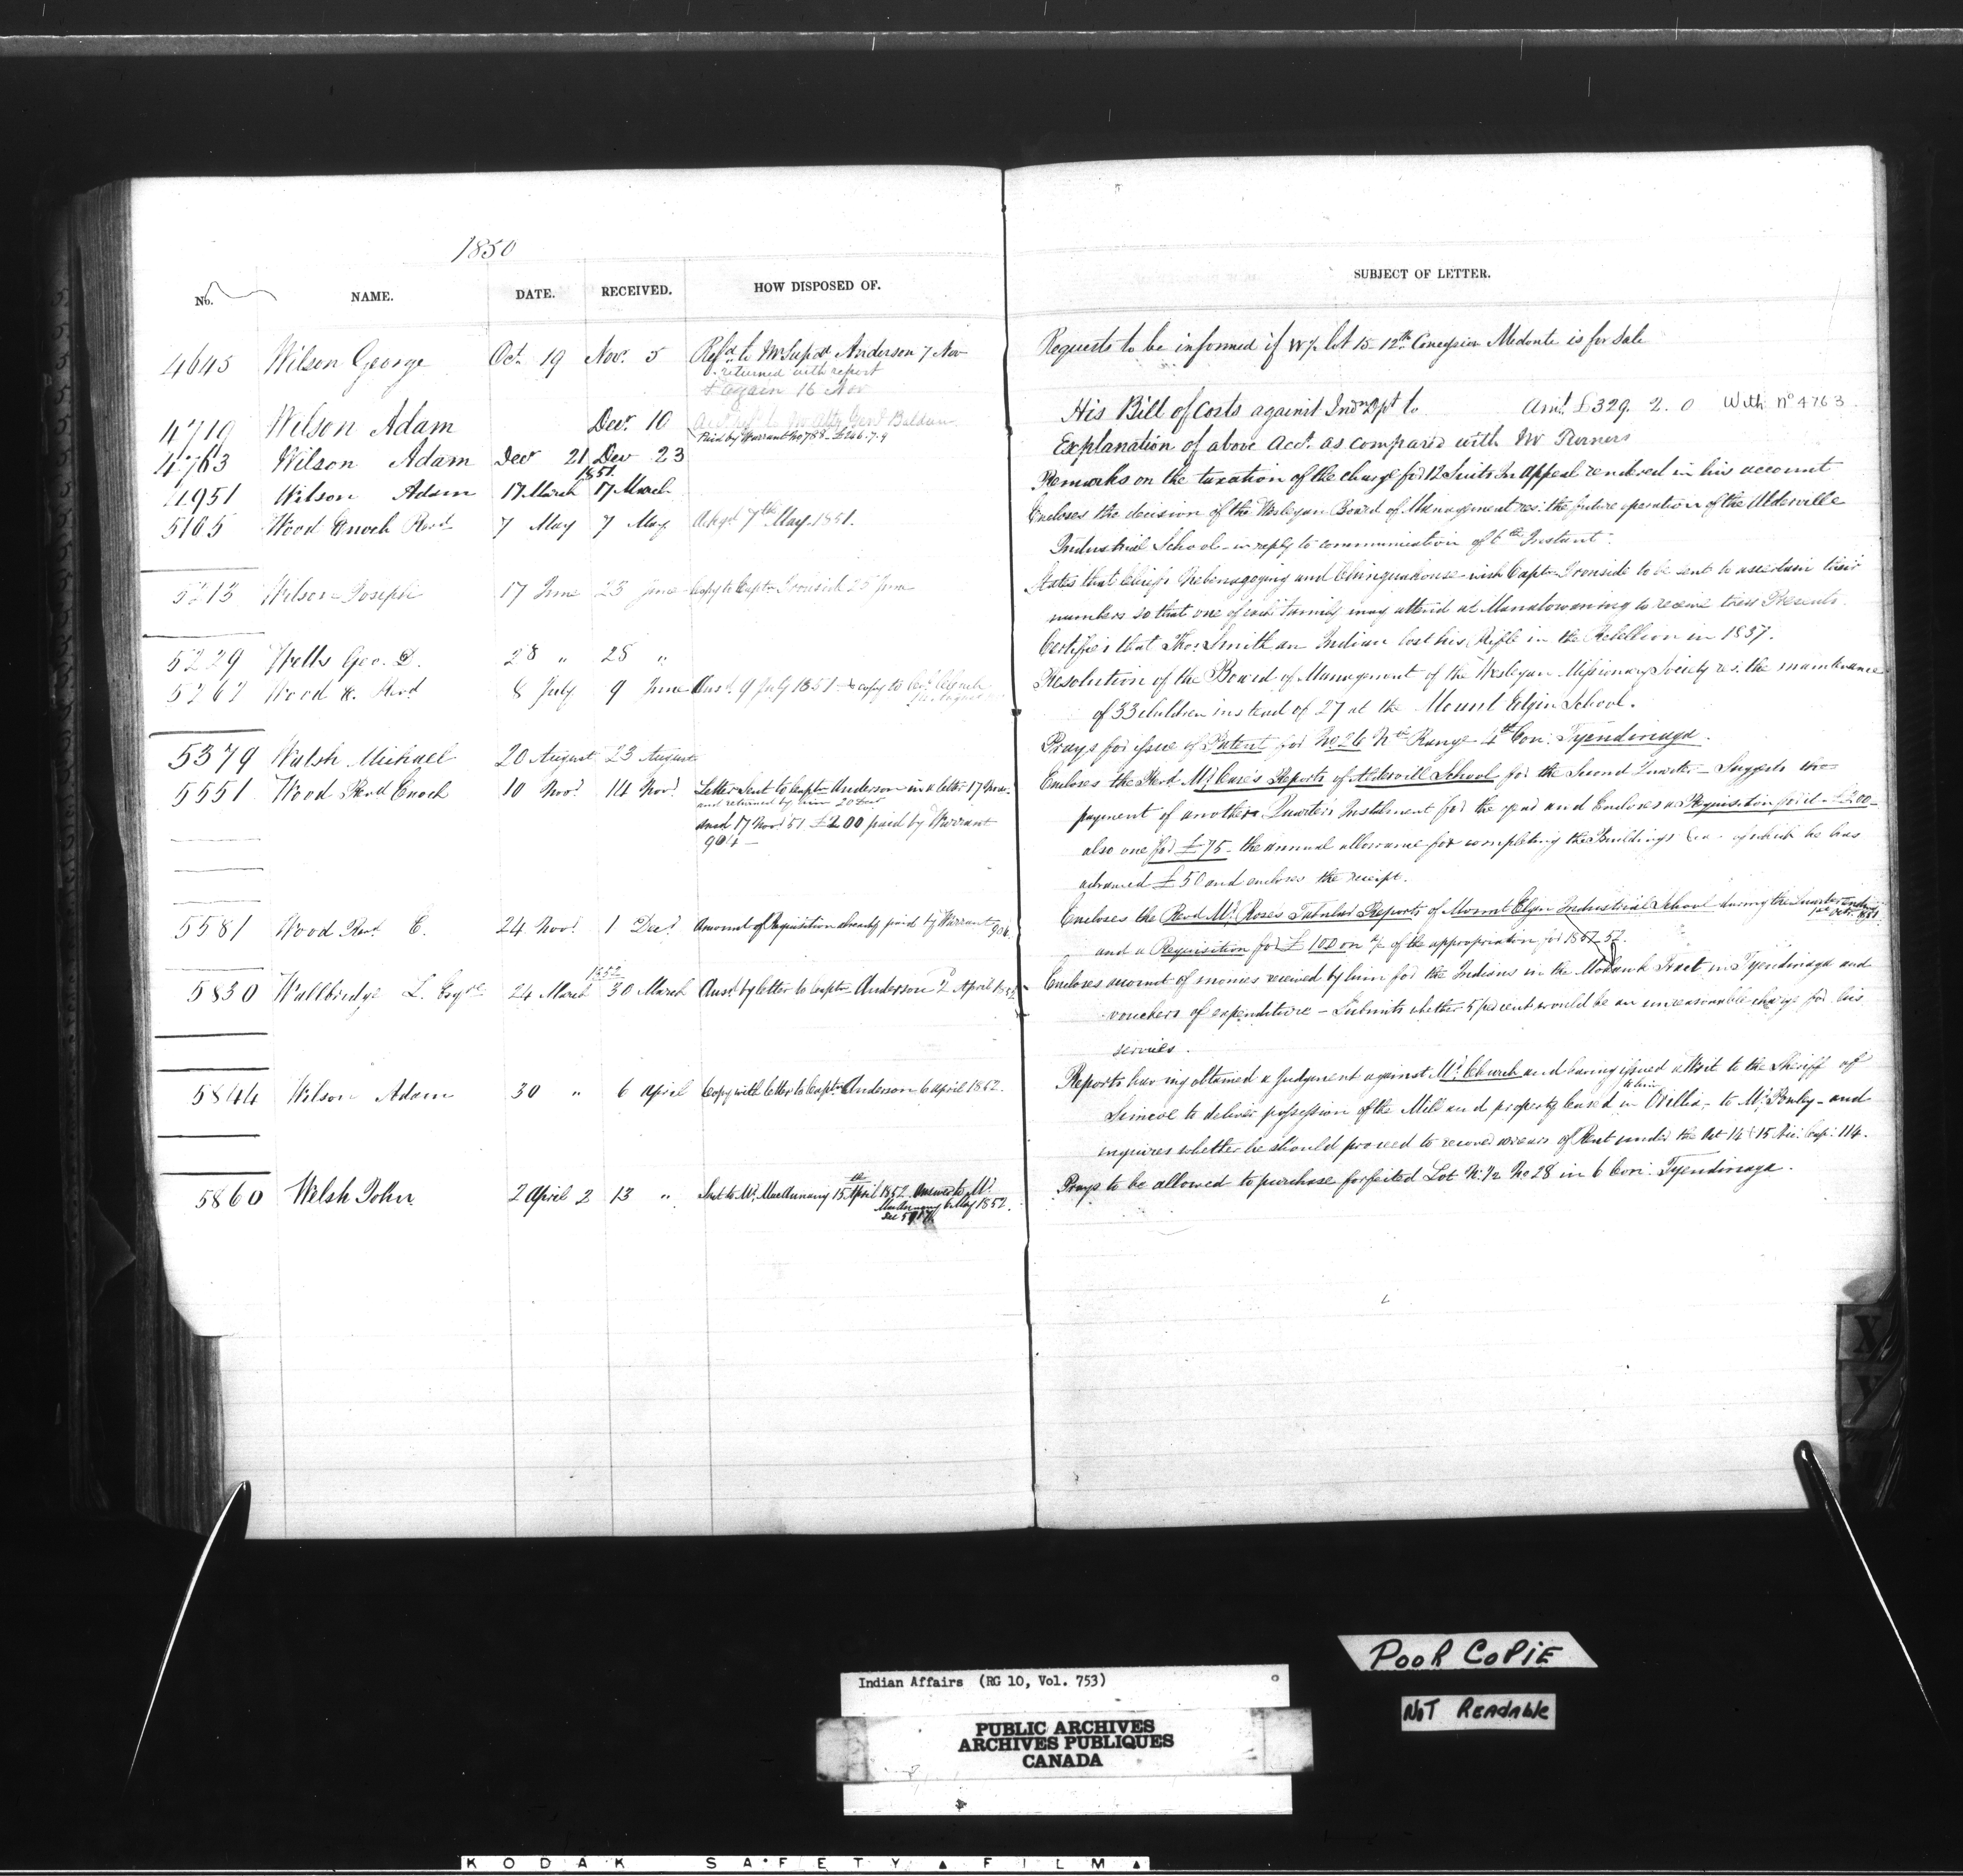 1850
No. NAME. DATE. RECEIVED. HOW DISPOSED OF. SUBJECT OF LETTER.
4645 Wilson George Oct. 19 Novr. 5 Refd. to Mr Supdt Anderson 7 Nov Requests to be informed if W½ lot 15 12th Concession Medonte is for sale
returned with report
& again 16 Nov
4719 Wilson Adam Decr. 10 Baldwin His Bill of Costs against Indn Dpt to Amt. £329. 2. 0 With No 4763
Paid by Warrant No 788 - £246.7.9
4763 Wilson Adam Decr 21 Decr 23 Explanation of above Acct. as compared with Mr Turners
1851
4951 Wilson Adam 17 March 17 March Remarks on the taxation of the charge for 12 Suits in Appeal rendered in his account
5165 Wood Enoch Revd. 7 May 7 May Akgd 7th May 1851. Encloses the decision of the Wesleyan Board of Management res: the future operation of the Alderville
Industrial School - in reply to communication of 6th Instant.
5213 Wilson Joseph 17 June 23 June Copy to Captn Ironside 25 June States that Chiefs and wish Captn Ironside to be sent to ascertain their
numbers so that one of each family may attend at Manatowaning to receive their Presents.
5229 Wells Geo. D. 28 " 28 " Certifies that Thos. Smith an Indian lost his Rifle in the Rebellion in 1837.
5267 Wood E. Revd 8 July 9 June Ansd. 9 July 1851 & copy to Resolution of the Board of Management of the Wesleyan Missionary Society res: the maintenance
of 33 children instead of 27 at the Mount Elgin School.
5379 Walsh Michael 20 August 23 August Prays for issue of Patent for No 26 Range 4th Con: Tyendinaga.
5551 Wood Revd Enoch 10 Novr. 14 Novr. Letter sent to Captn Anderson in a letter 17 Novr. Encloses the Revd. Mr. Case's Reports of Aldervill School for the Second Quarter - Suggests
and returned by him 20 Novr
ansd 17 Novr. 51 £200 paid by Warrant payment of another Quarter's Instalment for the year and encloses a Requisition for £200 -
904 - also one for £75 - the annual allowance for completing the Buildings &ca - of which he has
advanced £50 and encloses the receipt.
5581 Wood Revd. E. 24 Novr. 1 Decr. Amount of Requisition already paid by Warrant 904. Encloses the Revd Mr. Rose's Tabular Reports of Mount Elgin Industrial School during the Quarter ending
1st Octr. 1851
and a Requisition for £100 on a/c of the appropriation for 1851-52.
1852
5830 Wallbridge L. Esqre 24 March 30 March Ansd. by letter to Captn Anderson 2 April 1852 Encloses account of monies received by him for the Indians in the Mohawk Tract in Tyendinaga and
vouchers of expenditure - Submits whether 5 per cent would be an unreasonable charge for his
services.
5844 Wilson Adam 30 " 6 April Copy with letter to Captn Anderson 6 April 1852. Reports having obtained a Judgement against Mr. Church and having issued a Writ to the Sheriff of
to him
Simcoe to deliver possession of the Mill and property leased in Orillia, to Mr. - and
inquires whether he should proceed to recover arrears of Rent under the Act 14 & 15 Vic: Cap: 114.
5860 Welsh John 2 April 2 13 " Sent to Mr. MacAnnany 15th April 1852. Answer to Mr. Prays to be allowed to purchase forfeited Lot N: ½ No 28 in 6 Con: Tyendinaga.
MacAnnany 6 May 1852.
See
X
Y
POOR COPIE
NOT READABLE
Indian Affairs (RG 10, Vol. 753)
PUBLIC ARCHIVES
ARCHIVES PUBLIQUES
CANADA
KODAK SAFETY FILM